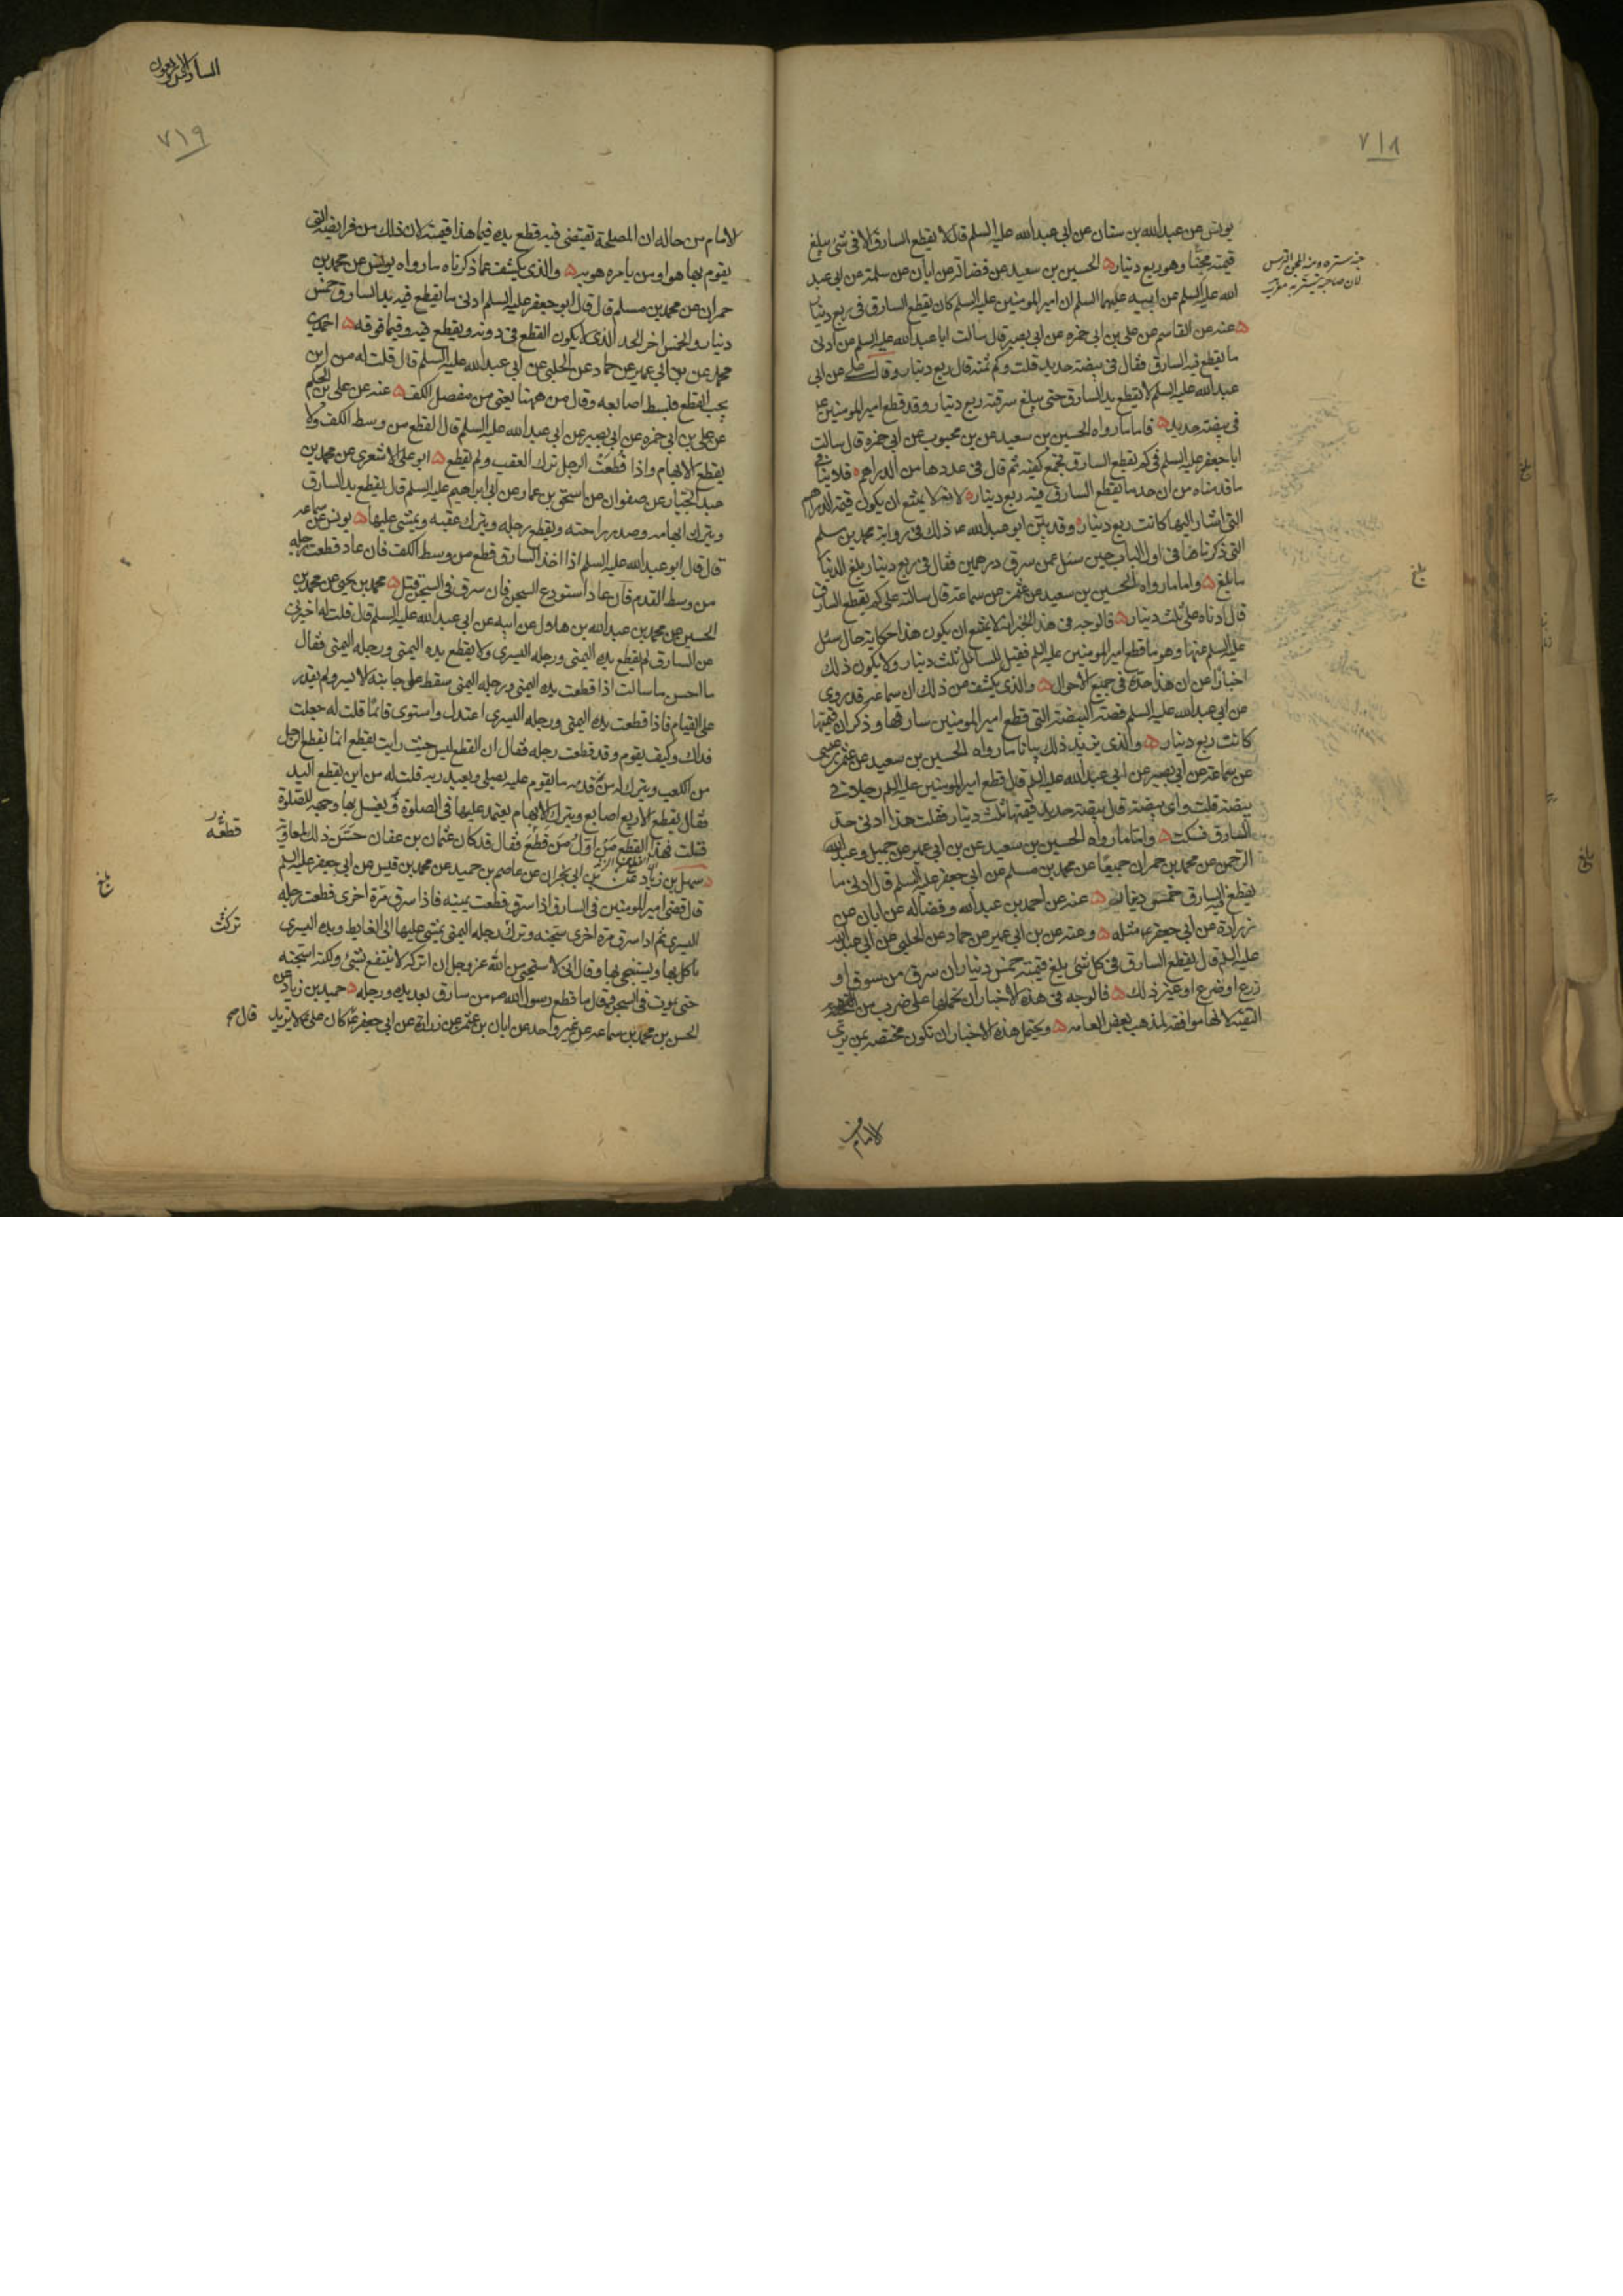 ٧١٨
يونس عن عبد الله بن سنان عن ابي عبد الله عليه السلم قال لا يقطع السارق الا في شئ يبلغ
قيمته مجنا وهو ربع دينار ه الحسين بن سعيد عن فضالة عن ابان عن سلمة عن ابي عبد
الله عليه السلم عن ابيه عليهما السلم ان امير المومنين عليه السلم كان يقطع السارق في ربع دينار
ه عنه عن القاسم عن علي بن ابي حمزه عن ابي بصير قال سالت ابا عبد الله عليه السلم عن ادنى
ما يقطع فيه السارق فقال في بيضة حديد قلت وكم ثمنه قال ربع دينار وقال علي عن ابي
عبد الله عليه السلم لا يقطع يد السارق حتى يبلغ سرقته ربع دينار وقد قطع امير المومنين ع
في بيضة حديد ه فاما ما رواه الحسين بن سعيد عن بن محبوب عن ابي حمزه قال سالت
ابا جعفر عليه السلم في كم يقطع السارق فجمع كفيه ثم قال في عددها من الدراهم ه فلا ينافي
ما قدمناه من ان حد ما يقطع السارق فيه ربع دينار ه لانه لا يمتنع ان يكون قيمة الدراهم
التي اشار اليها كانت ربع دينار ه وقد بين ابو عبد الله ع ذلك في رواية محمد بن مسلم
التي ذكرناها في اول الباب حين سئل عمن سرق درهمين فقال في ربع دينار بلغ الدينار
ما بلغ ه واما ما رواه الحسين بن سعيد عن عثمن عن سماعة قال سالته على كم يقطع السارق
قال ادناه على ثلث دينار ه فالوجه في هذا الخبر انه لا يمتنع ان يكون هذا حكاية حال سئل
عليه السلم عنها وهو ما قطع امير المومنين عليه السلم فقيل للسائل ثلث دينار ولا يكون ذلك
اخبارا عن ان هذا حده في جميع الاحوال ه والذي يكشف عن ذلك ان سماعة قد روى
عن ابي عبد الله عليه السلم قصة البيضة التي قطع امير المومنين سارقها وذكر ان قيمتها
كانت ربع دينار ه والذي يزيد ذلك بيانا ما رواه الحسين بن سعيد عن عثمن بن عيسى
عن سماعة عن ابي بصير عن ابي عبد الله عليه السلم قال قطع امير المومنين عليه السلم رجلا في
بيضة قلت واي بيضة قال بيضة حديد قيمتها ثلث دينار فقلت هذا ادنى حد
السارق فسكت ه واما ما رواه الحسين بن سعيد عن بن ابي عمير عن جميل وعبد
الرحمن عن محمد بن حمران جميعا عن محمد بن مسلم عن ابي جعفر عليه السلم قال ادنى ما
يقطع فيه السارق خمس دينار ه عنه عن احمد بن عبد الله وفضالة عن ابان عن
زرارة عن ابي جعفر ع مثله ه وعنه عن بن ابي عمير عن حماد عن الحلبي عن ابي عبد الله
عليه السلم قال يقطع السارق في كل شئ بلغ قيمته خمس دينار ان سرق من سوق او
زرع او ضرع او غير ذلك ه فالوجه في هذه الاخبار ان نحملها على ضرب من
التقية لانها موافقة لمذهب بعض العامه ه ويحتمل هذه الاخبار ان تكون مختصة بمن يرى
الامام
بلغ
٧١٩
الامام من حاله ان المصلحة تقتضي فيه قطع يده فيما هذا قيمته لان ذلك من فرايضه التي
يقوم بها هو او من يامره هو به ه والذي يكشف عما ذكرناه ما رواه يونس عن محمد بن
حمران عن محمد بن مسلم قال قال ابو جعفر عليه السلم ادنى ما تقطع فيه يد السارق خمس
دينار والخمس اخر الحد الذي لا يكون القطع في دونه ويقطع فيه وفيما فوقه ه احمد بن
محمد عن بن ابي عمير عن حماد عن الحلبي عن ابي عبد الله عليه السلم قال قلت له من اين
يجب القطع فبسط اصابعه وقال من ههنا يعني من مفصل الكف ه عنه عن علي بن الحكم
عن علي بن ابي حمزه عن ابي بصير عن ابي عبد الله عليه السلم قال القطع من وسط الكف ولا
يقطع الابهام واذا قطعت الرجل ترك العقب ولم يقطع ه ابو علي الاشعري عن محمد بن
عبد الجبار عن صفوان عن اسحق بن عمار عن ابي ابراهيم عليه السلم قال يقطع يد السارق
ويترك ابهامه وصدر راحته وتقطع رجله ويترك عقبه ويمشي عليها ه يونس عن سماعه
قال قال ابو عبد الله عليه السلم اذا اخذ السارق قطع من وسط الكف فان عاد قطعت رجله
من وسط القدم فان عاد استودع السجن فان سرق في السجن قتل ه محمد بن يحيى عن محمد بن
الحسين عن محمد بن عبد الله بن هلال عن ابيه عن ابي عبد الله عليه السلم قال قلت له اخبرني
عن السارق لم يقطع يده اليمنى ورجله اليسرى ولا يقطع يده اليمنى ورجله اليمنى فقال
ما احسن ما سالت اذا قطعت يده اليمنى ورجله اليمنى سقط على جانبه الايسر ولم يقدر
على القيام فاذا قطعت يده اليمنى ورجله اليسرى اعتدل واستوى قائما قلت له جعلت
فداك وكيف يقوم وقد قطعت رجله فقال ان القطع ليس حيث رايت يقطع انما يقطع الرجل
من الكعب ويترك له من قدمه ما يقوم عليه يصلي ويعبد ربه قلت له من اين يقطع اليد
فقال يقطع الاربع اصابع ويترك الابهام يعتمد عليها في الصلوة ويغسل بها وجهه للصلوة
قلت فهذا القطع من اول من قطع فقال قد كان عثمان بن عفان حسن ذلك لمعاوية
سهل بن زياد عن بن ابي نجران عن عاصم بن حميد عن محمد بن قيس عن ابي جعفر عليه السلم
قال قضى امير المومنين في السارق اذا سرق قطعت يمينه فاذا سرق مرة اخرى قطعت رجله
اليسرى ثم اذا سرق مرة اخرى سجنه وترك رجله اليمنى يمشي عليها الى الغايط ويده اليسرى
ياكل بها ويستنجي بها وقال اني لاستحيي من الله عز وجل ان اتركه لا ينتفع بشئ ولكنه اسجنه
حتى يموت في السجن وقال ما قطع رسول الله ص من سارق بعد يده ورجله ه حميد بن زياد عن
الحسن بن محمد بن سماعه عن غير واحد عن ابان بن عثمن عن زرارة عن ابي جعفر ع كان علي ع لا يزيد
قطعه
تركت
قال صح
بلغ